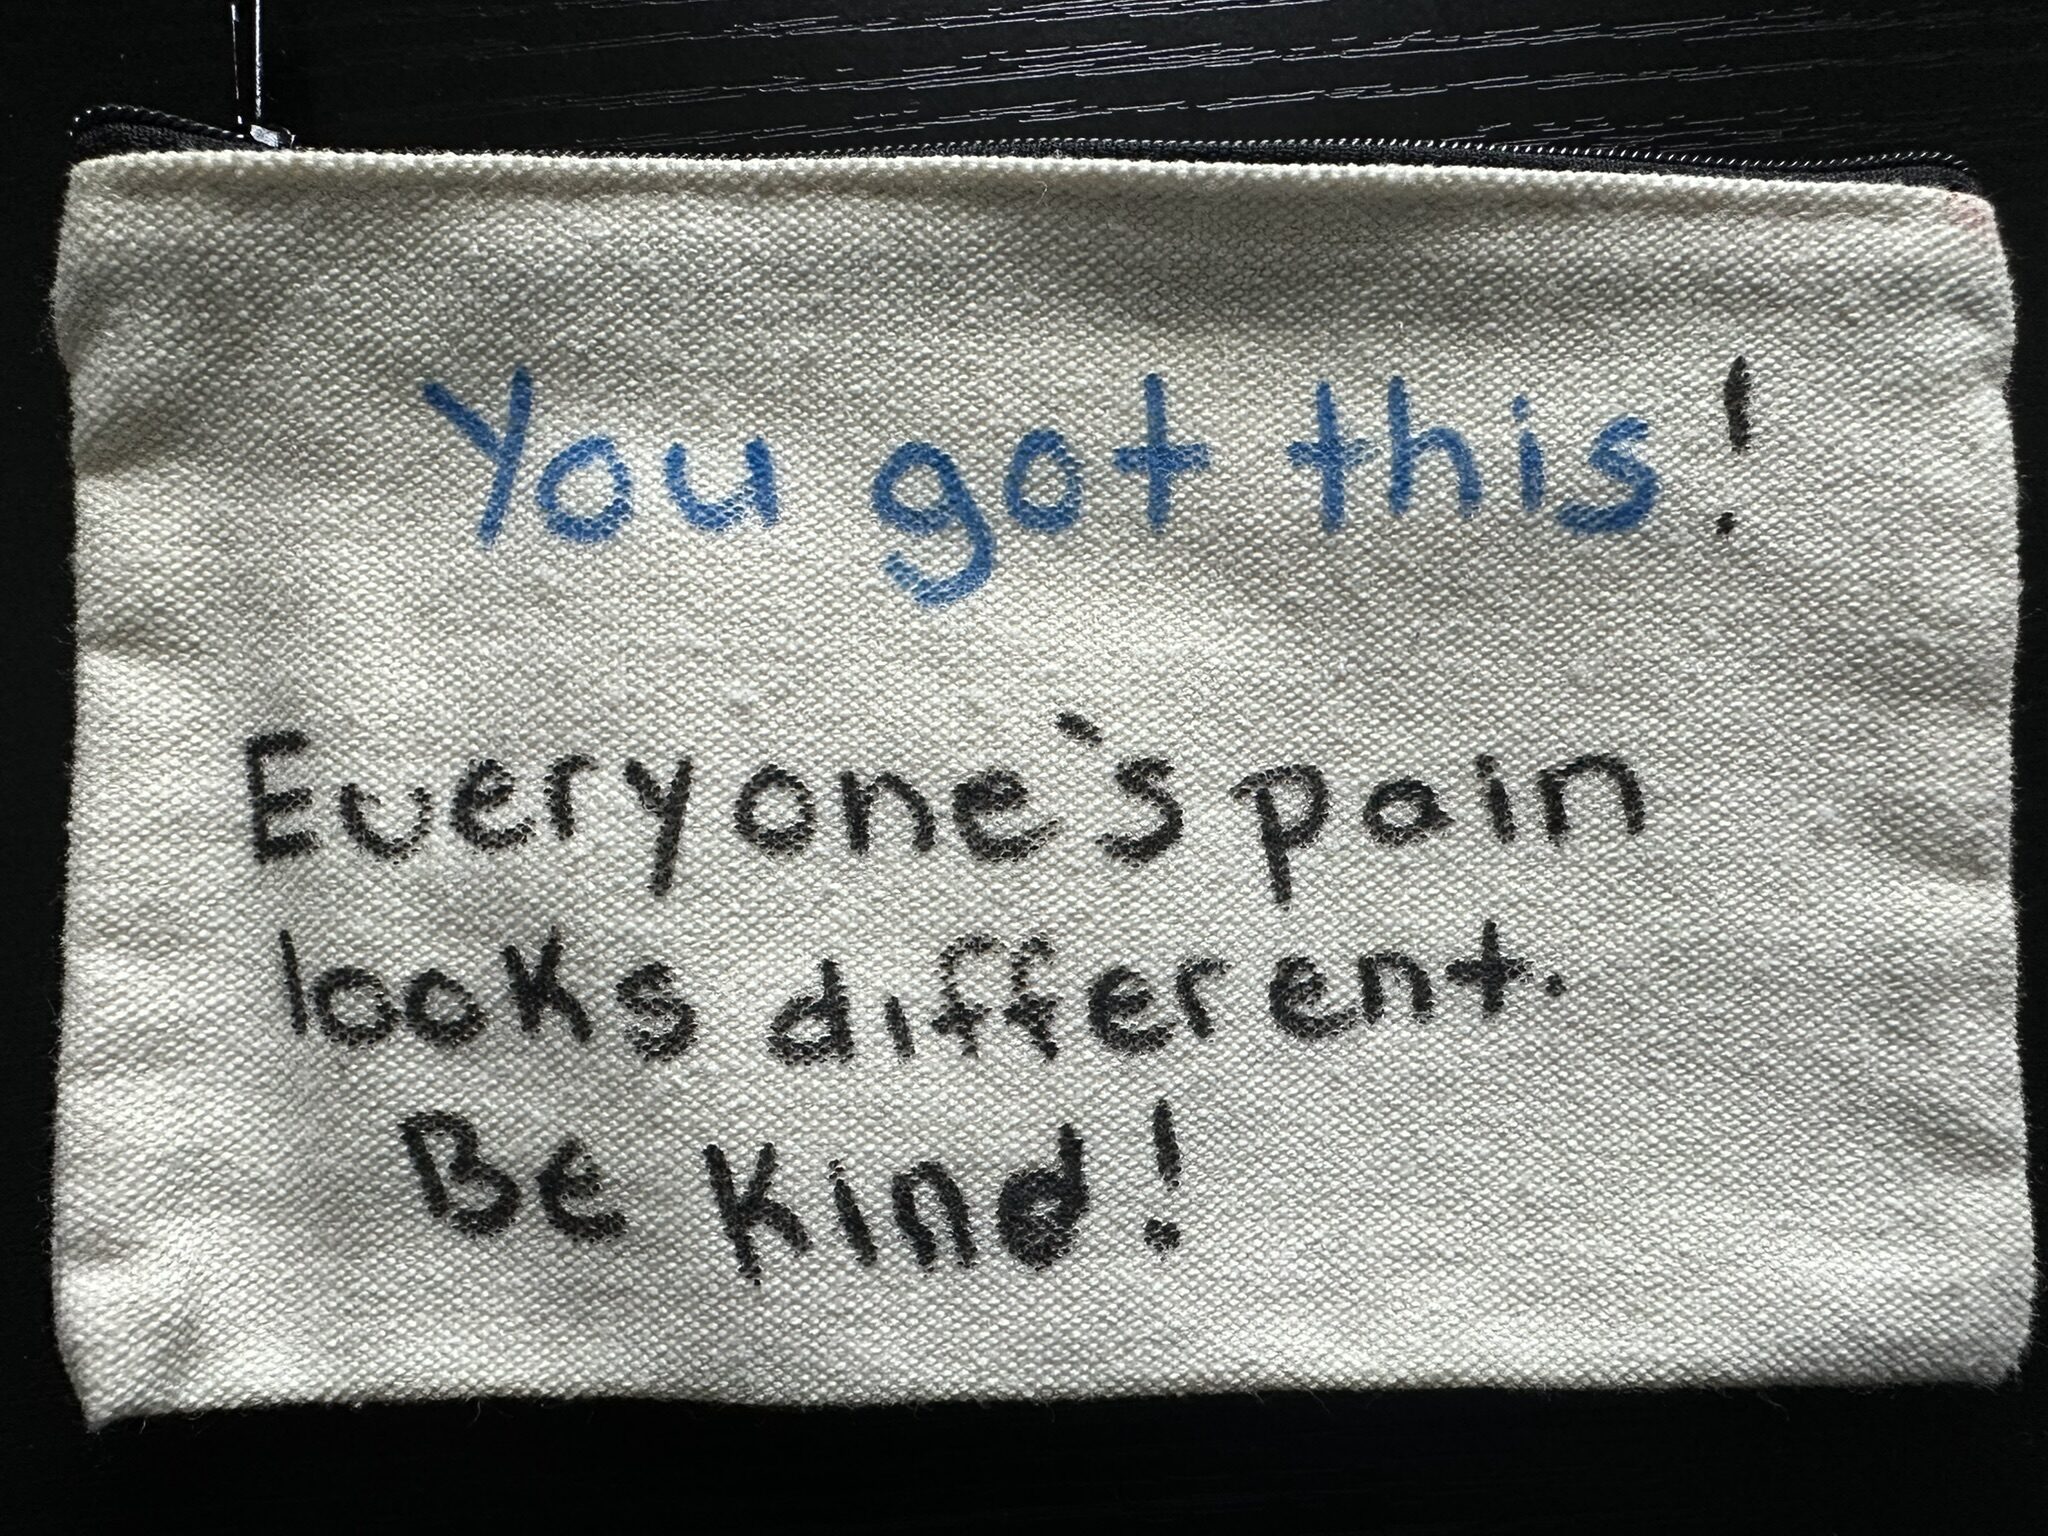 You got this!
Everyone's pain
looks different.
Be Kind!